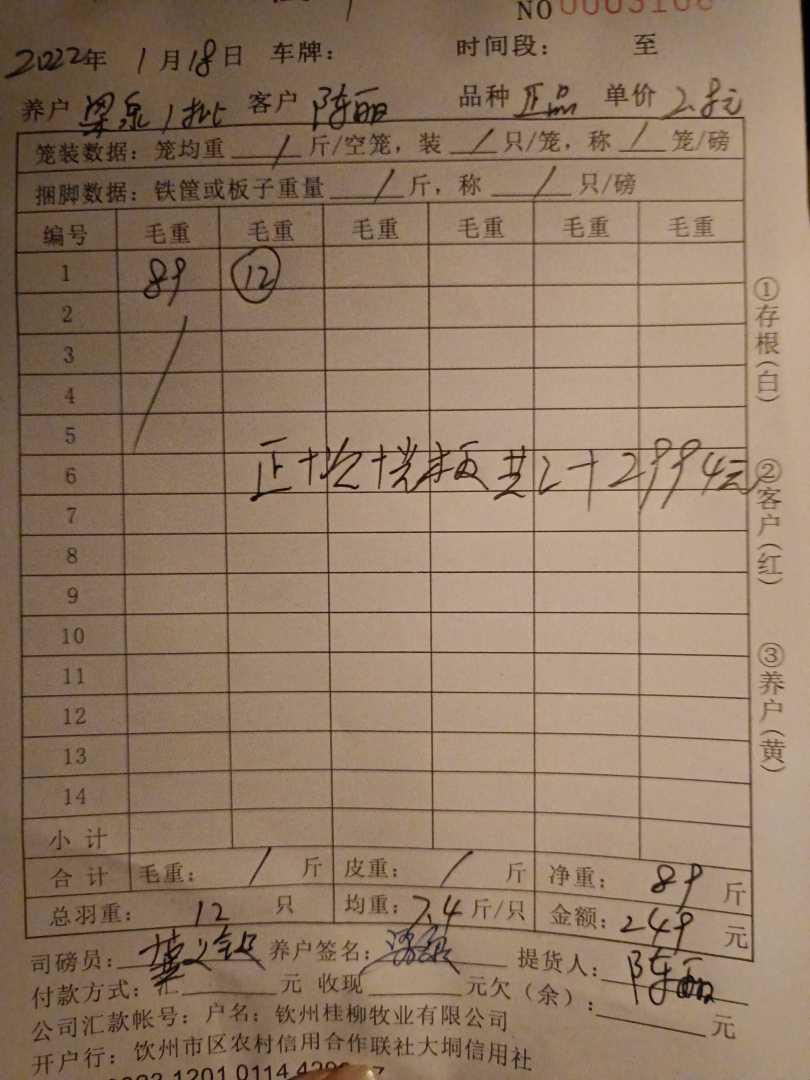 NO 0003166
2022年 1月18日 车牌： 时间段： 至
养户 梁泉1批 客户 陈丽 品种 正品 单价 2.8元
笼装数据：笼均重 / 斤/空笼，装 / 只/笼，称 / 笼/磅
捆脚数据：铁筐或板子重量 / 斤，称 / 只/磅
编号 毛重 毛重 毛重 毛重 毛重 毛重
1 89 12
2
3
4
5
6 正 板 共计 2994元
7
8
9
10
11
12
13
14
小计
合计 毛重： / 斤 皮重： / 斤 净重： 89 斤
总羽重： 12 只 均重： 7.4 斤/只 金额： 249 元
司磅员： 养户签名： 梁泉 提货人： 陈丽
付款方式：汇 元 收现 元欠（余）： 元
公司汇款帐号：户名：钦州桂柳牧业有限公司
开户行：钦州市区农村信用合作联社大垌信用社
1201 0114
①存根（白）
②客户（红）
③养户（黄）